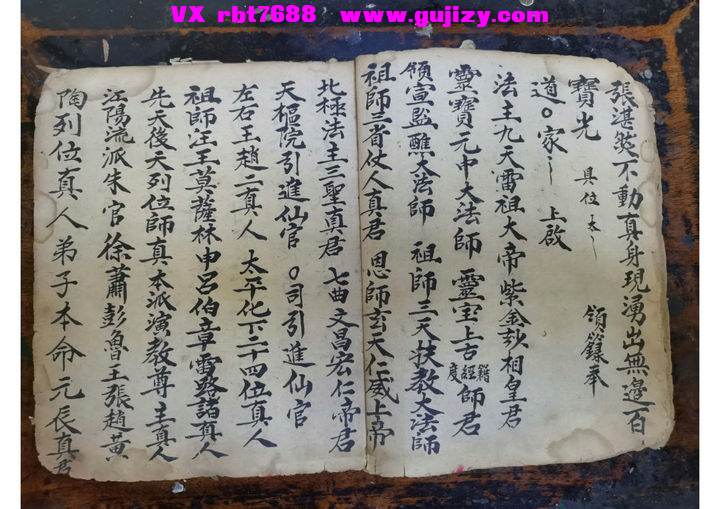 VX rbt7688 www.gujizy.com
張湛然不動真身現湧出無邊百
寶光 具位太〻 領籙奉
道〇家〻 上啟
法主九天雷祖大帝 紫金妙相皇君
靈寶元中大法師 靈宝上古經籍度師君
領宣監醮大法師 祖師三天扶教大法師
祖師三省仗人真君 恩師玄天仁威上帝
北極法主三聖真君 七曲文昌宏仁帝君
天樞院引進仙官 〇司引進仙官
左右王趙二真人 太平化下二十四位真人
祖師汪王莫薩林申呂伯章雷路諸真人
先天後天列位師真本派演教尊主真人
江陽流派朱官徐蕭彭魯王張趙黃
陶列位真人弟子本命元辰真君